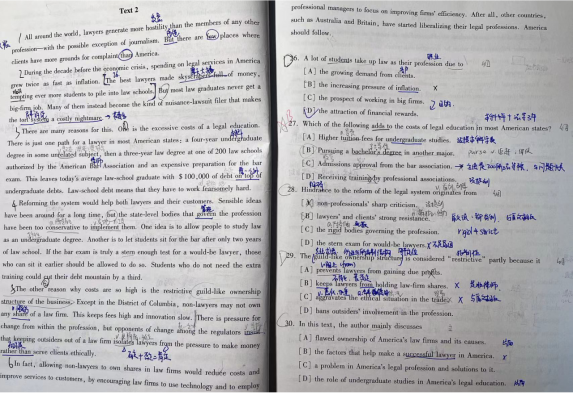 Text 2
All around the world, lawyers generate more hostility than the members of any other
profession—with the possible exception of journalism. But there are few places where
clients have more grounds for complaint than America.
During the decade before the economic crisis, spending on legal services in America
grew twice as fast as inflation. The best lawyers made skyscrapers-full of money,
tempting ever more students to pile into law schools. But most law graduates never get a
big-firm job. Many of them instead become the kind of nuisance-lawsuit filer that makes
the tort system a costly nightmare.
There are many reasons for this. One is the excessive costs of a legal education.
There is just one path for a lawyer in most American states: a four-year undergraduate
degree in some unrelated subject, then a three-year law degree at one of 200 law schools
authorized by the American Bar Association and an expensive preparation for the bar
exam. This leaves today's average law-school graduate with $100,000 of debt on top of
undergraduate debts. Law-school debt means that they have to work fearsomely hard.
Reforming the system would help both lawyers and their customers. Sensible ideas
have been around for a long time, but the state-level bodies that govern the profession
have been too conservative to implement them. One idea is to allow people to study law
as an undergraduate degree. Another is to let students sit for the bar after only two years
of law school. If the bar exam is truly a stern enough test for a would-be lawyer, those
who can sit it earlier should be allowed to do so. Students who do not need the extra
training could cut their debt mountain by a third.
The other reason why costs are so high is the restrictive guild-like ownership
structure of the business. Except in the District of Columbia, non-lawyers may not own
any share of a law firm. This keeps fees high and innovation slow. There is pressure for
change from within the profession, but opponents of change among the regulators insist
that keeping outsiders out of a law firm isolates lawyers from the pressure to make money
rather than serve clients ethically.
In fact, allowing non-lawyers to own shares in law firms would reduce costs and
improve services to customers, by encouraging law firms to use technology and to employ
professional managers to focus on improving firms' efficiency. After all, other countries,
such as Australia and Britain, have started liberalizing their legal professions. America
should follow.
26. A lot of students take up law as their profession due to
[A] the growing demand from clients.
[B] the increasing pressure of inflation. x
[C] the prospect of working in big firms.
[D] the attraction of financial rewards.
27. Which of the following adds to the costs of legal education in most American states?
[A] Higher tuition fees for undergraduate studies.
[B] Pursuing a bachelor's degree in another major.
[C] Admissions approval from the bar association.
[D] Receiving training by professional associations.
28. Hindrance to the reform of the legal system originates from
[A] non-professionals' sharp criticism.
[B] lawyers' and clients' strong resistance.
[C] the rigid bodies governing the profession.
[D] the stern exam for would-be lawyers.
29. The guild-like ownership structure is considered "restrictive" partly because it
[A] prevents lawyers from gaining due profits.
[B] keeps lawyers from holding law-firm shares. x
[C] aggravates the ethical situation in the trade. x
[D] bans outsiders' involvement in the profession.
30. In this text, the author mainly discusses
[A] flawed ownership of America's law firms and its causes.
[B] the factors that help make a successful lawyer in America. x
[C] a problem in America's legal profession and solutions to it.
[D] the role of undergraduate studies in America's legal education.